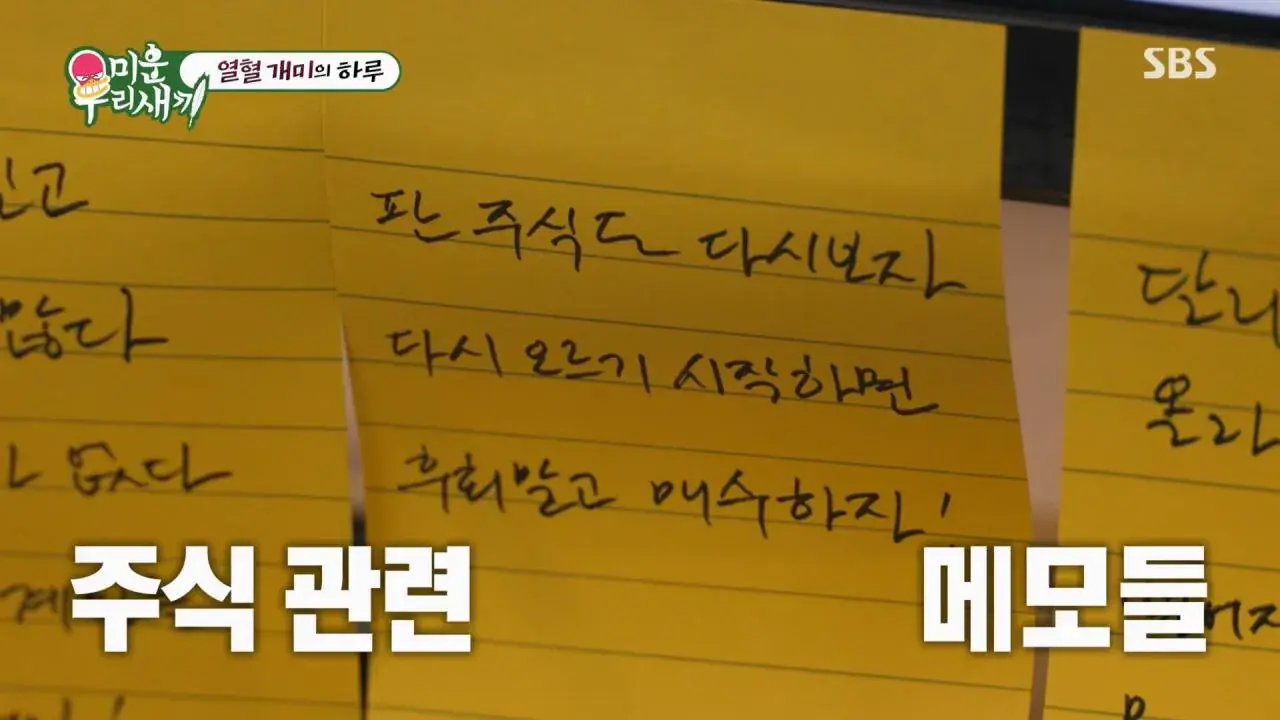 미운 우리새끼
열혈 개미의 하루
SBS
판 주식도 다시보자
다시 오르기 시작하면
후회말고 매수하자!
많다
없다
주식 관련 메모들